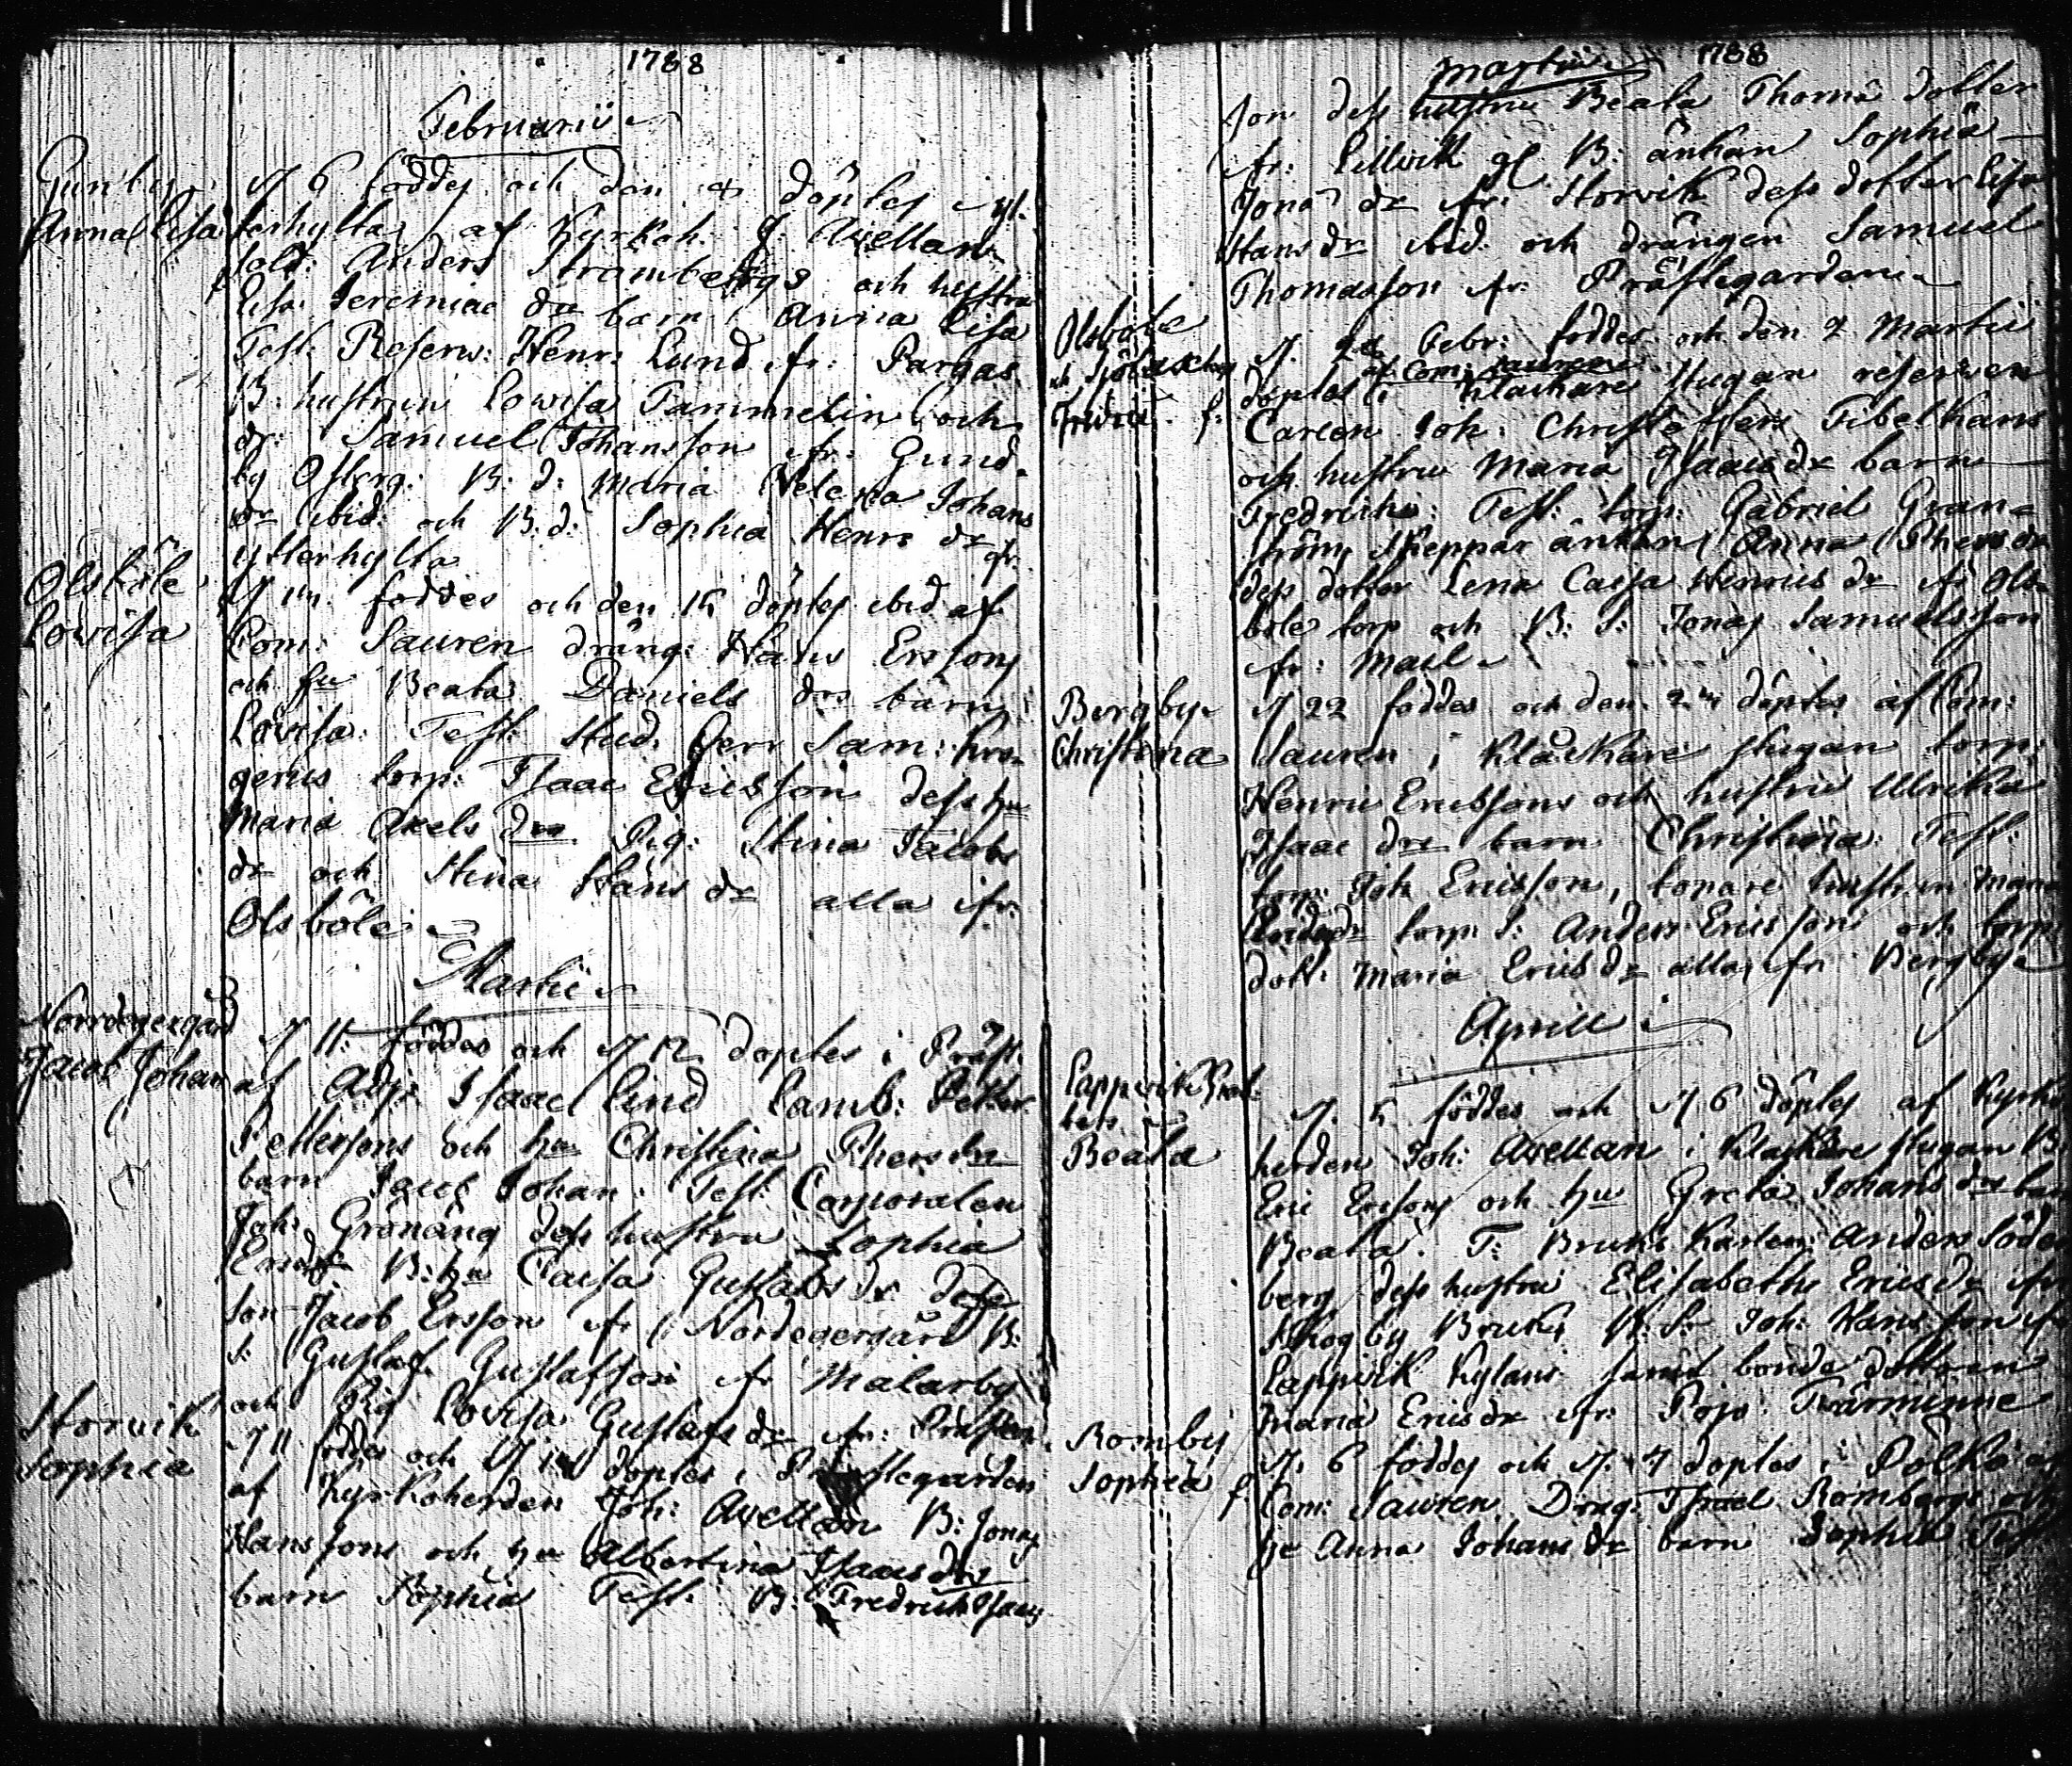 1788
Februarii
Gunby
Anna Lisa
d. 6 föddes och den döptes i yt-
terhylta af Kyrkoh. J. Avellan
Sold: Anders Strömbergs och hustru
Lisa Jeremiae dr barn Anna Lisa
Test: Reserv: Henr: Lund fr: Pargas
B: hustrun Lowisa Tammelin och
dr: Samuel Johansson fr: Gund-
by Osterg: B: d: Maria Helena Johans
dr ibid: och B: d: Sophia Henr: dr fr.
ytterhylta
Olsböle
Lowisa
d. föddes och den 15 döptes ibid af
Com: Sauren dräng: Hans Erssons
och hu Beata Daniels drs barn
Lovisa: Test: Stud: Herr Sam: Kro-
gerus torp: Isaac Ericsson dess hu
Maria Axels dr Pig: Stina Jacobs
dr och Stina Hans dr alla fr:
Olsböle
Martii
Norrdegergård
Jacob Johan
d 11: föddes och d 12 döptes i Präst.
af Adj: Isaac Lind Lamb: Petter
Pettersons och hu Christina Phers dr
barn Jacob Johan. Test: Corporalen
Joh: Grönäng dess hustru Sophia
Ericsdr B: hu Caisa Gustafs dr dess
son Jacob Ersson fr Nordegergård B:
S: Gustaf Gustafsson fr Malarby
och Pig Lovisa Gustafs dr fr:
Storvik
Sophia
d 11 föddes och d döptes i Prästegarden
af Kyrkoherden Joh: Avellan B: Jonas
Hanssons och hu Albertina Isaacs drs
barn Sophia Test: B: Fredrich Isaacs
Martii 1788
son dess hustru Beata Thomæ dotter
fr: Lillvik gl B: änkan Sophia
Jonæ dr fr: Storvik dess dotter Lisa
Hans dr ibid: och drängen Samuel
Thomasson fr: Prästegarden
Olsböle
Fredrica
d. Febr: föddes och den 2 Martii
af Com: Sauren
döptes i Klåckare stugan reserven
Carlen Joh: Christoffers Tibelkans
och hustru Maria Isaacs dr barn
Fredrika: Test: torp: Gabriel Gran-
ström, Skeppar änkan Anna Phers dr
dess dotter Lena Caisa Henrics dr fr Ols-
böle torp och B: S: Jonas Samuelsson
fr:
Bergby
Christina
d 22 föddes och den döptes af Com:
Sauren i Klåckare stugan torp:
Henric Ericssons och hustru Ulrika
Isaac drs barn Christina: Test:
torp: Joh Ericsson, hustrun Maria
torp: S: Anders Ericsson och torp:
dott: Maria Erics dr alla fr Bergby
Aprill
Lappvik
Beata
d. 5 föddes och d 6 döptes af Kyrko
herden Joh: Avellan i Klåckare stugan B:
Eric Erssons och hu Greta Johans drs barn
Beata. T: Bruks Karlen Anders Söder
berg dess hustru Elisabeth Erics dr fr
Skogby Bruk, B: S: Joh: Hansson fr
Lappvik Kylans samt bonde dottren
Maria Ericsdr fr: Pojo Tvärminne
Romby
Sophia
d. 6 föddes och d. 7 döptes i
Com: Sauren Drag: Israel Rombergs och
Anna Johans dr barn Sophia Test